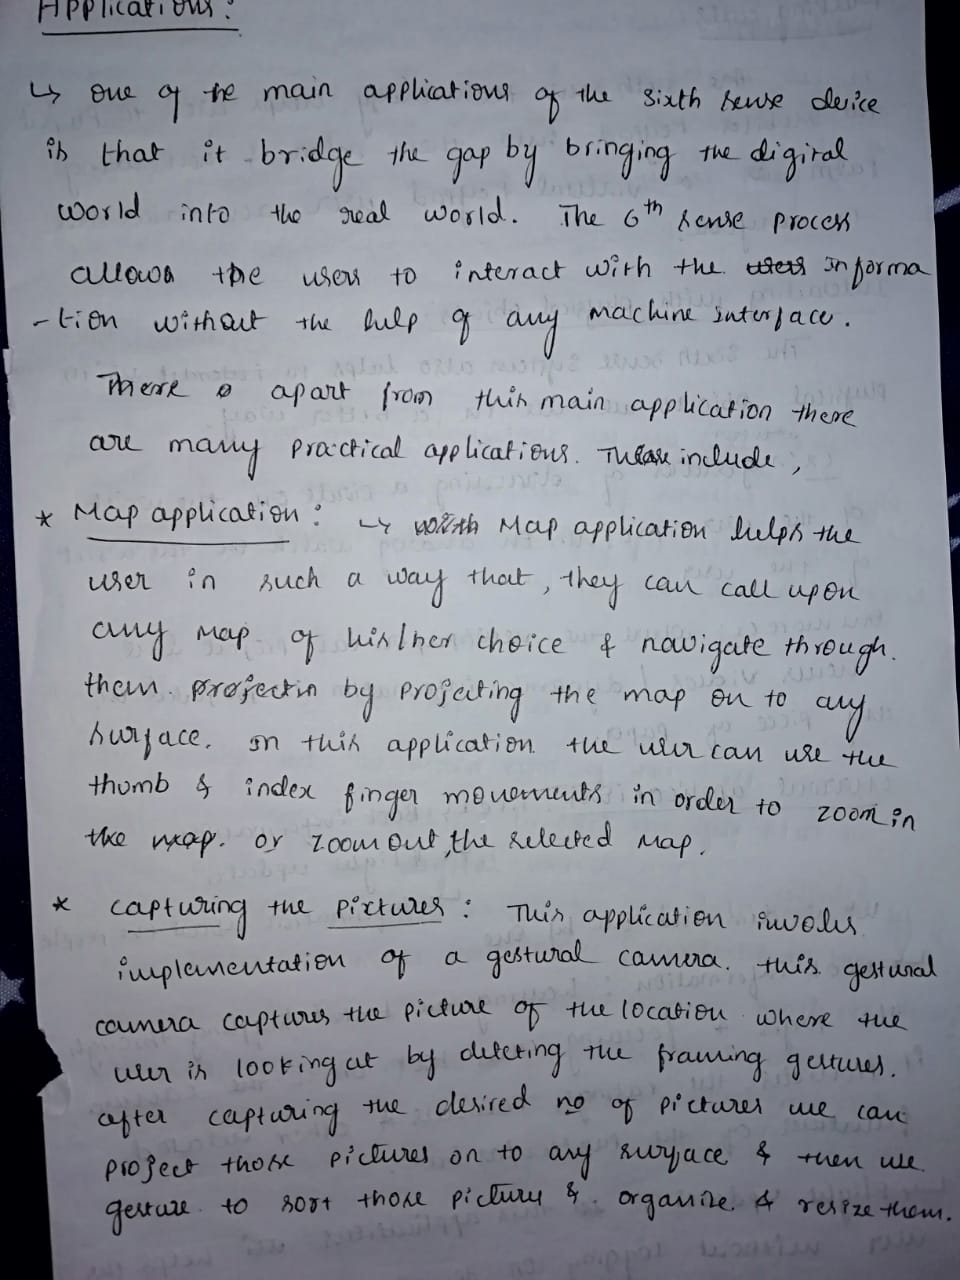 Applications:
↳ one of the main applications of the sixth sense device
is that it bridge the gap by bringing the digital
world into the real world. The 6th sense process
allows the users to interact with the users informa
-tion without the help of any machine interface.
There apart from this main application there
are many practical applications. These include,
* Map application: ↳ With Map application helps the
user in such a way that, they can call upon
any map of his/her choice & navigate through.
them. projectin by projecting the map on to any
surface. In this application the user can use the
thumb & index finger movements in order to zoom in
the map. or zoom out, the selected map.
* capturing the pictures: This application involes
implementation of a gestural camera. this gestural
camera captures the picture of the location where the
user is looking at by detecting the framing gestures.
after capturing the desired no of pictures we can
project those pictures on to any surface & then use
gesture to sort those pictury & organize & resize them.